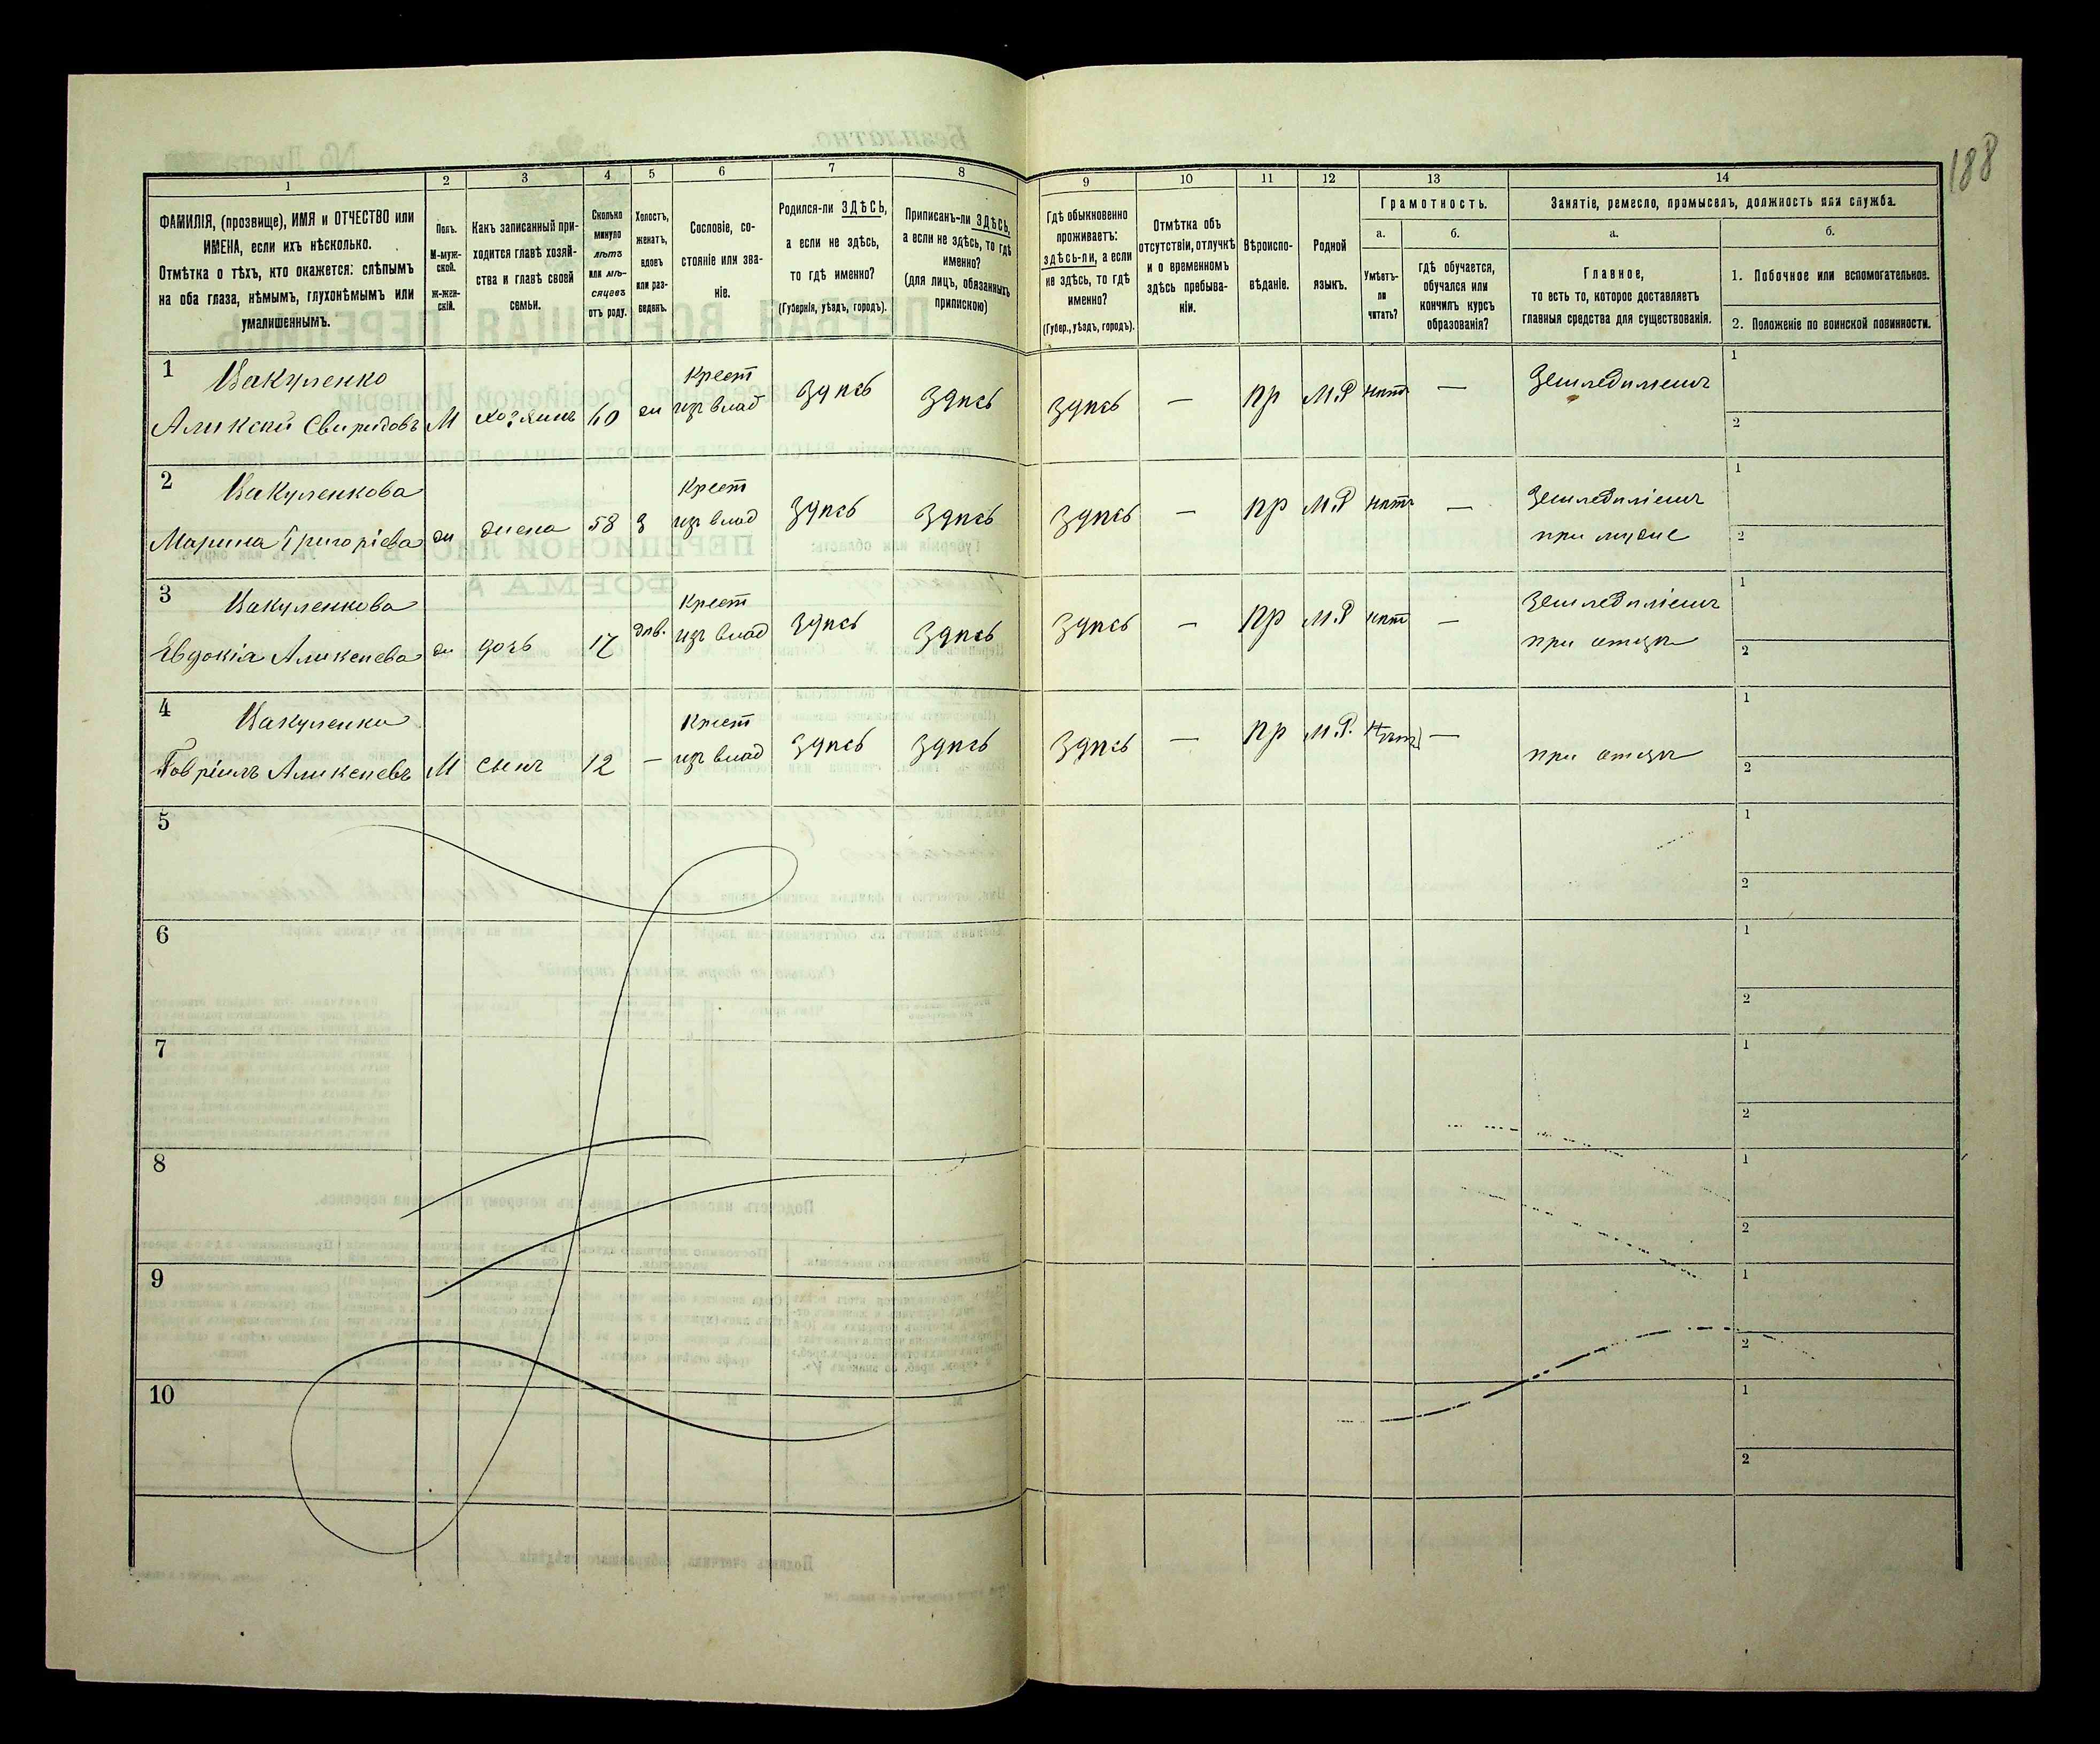 188
1
2
3
4
5
6
7
8
9
10
11
12
13
14
ФАМИЛІЯ, (прозвище), ИМЯ и ОТЧЕСТВО или
ИМЕНА, если ихъ нѣсколько.
Отмѣтка о тѣхъ, кто окажется: слѣпымъ
на оба глаза, нѣмымъ, глухонѣмымъ или
умалишеннымъ.
Полъ.
М-муж-
ской.
ж-жен-
скій.
Какъ записанный при-
ходится главѣ хозяй-
ства и главѣ своей
семьи.
Сколько
минуло
лѣтъ
или мѣ-
сяцевъ
отъ роду.
Холостъ,
женатъ,
вдовъ
или раз-
веденъ.
Сословіе, со-
стояніе или зва-
ніе.
Родился-ли ЗДѢСЬ,
а если не здѣсь,
то гдѣ именно?
(Губернія, уѣздъ, городъ).
Приписанъ-ли ЗДѢСЬ,
а если не здѣсь, то гдѣ
именно?
(для лицъ, обязанныхъ
припискою)
Гдѣ обыкновенно
проживаетъ:
здѣсь-ли, а если
не здѣсь, то гдѣ
именно?
(Губер., уѣздъ, городъ).
Отмѣтка объ
отсутствіи, отлучкѣ
и о временномъ
здѣсь пребыва-
ніи.
Вѣроиспо-
вѣданіе.
Родной
языкъ.
Грамотность.
а.
Умѣетъ-
ли
читать?
б.
гдѣ обучается,
обучался или
кончилъ курсъ
образованія?
Занятіе, ремесло, промыселъ, должность или служба.
а.
Главное,
то есть то, которое доставляетъ
главныя средства для существованія.
б.
1. Побочное или вспомогательное.
2. Положеніе по воинской повинности.
1 Вакуленко
Алексѣй Свиридовъ М хозяинъ 60 ж Крест из влад здѣсь здѣсь здѣсь — пр М.Р нѣтъ — Земледѣлецъ 1
2
2 Вакуленкова
Марина Григоріева ж жена 58 з Крест из влад здѣсь здѣсь здѣсь — пр М.Р нѣтъ — Земледѣліемъ 1
при мужѣ 2
3 Вакуленкова
Евдокія Алексѣева ж дочь 17 дѣв. Крест из влад здѣсь здѣсь здѣсь — пр М.Р нѣт — Земледѣліемъ 1
при отцѣ 2
4 Вакуленко
Гавріилъ Алексѣевъ М сынъ 12 — Крест из влад здѣсь здѣсь здѣсь — пр М.Р. Нѣтъ — 1
при отцѣ 2
5 1
2
6 1
2
7 1
2
8 1
2
9 1
2
10 1
2